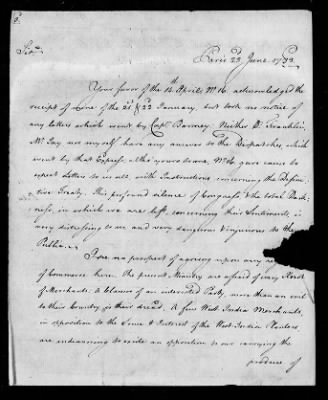 Sir
Paris 23 June 1783
Your favor of the 18th April No. 16. acknowledged the
receipt of mine of the 22 & 23 January, but took no notice of
any letters which went by Capt. Barney. Neither Dr. Franklin,
Mr. Jay nor myself have any answer to the Despatches, which
went by that Express. Altho' yours to me No. 16 gave cause to
expect Letters to us all, with Instructions concerning the Defini-
tive Treaty. This profound silence of Congress & the total Dark-
ness, in which we are left concerning their Sentiments, is
very distressing to us and very dangerous & injurious to the
Public.
I see no prospect of agreeing upon any
of Commerce here. The present Ministry are afraid of every Knot
of Merchants. A Clamor of an interested Party, more than an evil
to their Country is their dread. A few West India Merchants,
in opposition to the Sense & Interest of the West India Planters
are endeavoring to excite an opposition to our carrying the
produce of